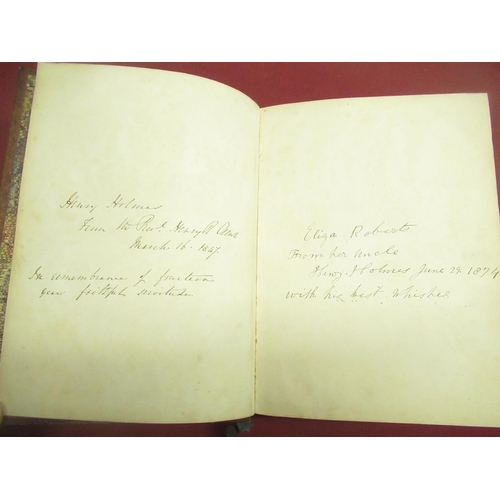 Henry Holmes
from the Revd. Henry R
March 16. 1847
In remembrance of fourteen
year
Eliza Roberts
From her uncle
Henry Holmes June 29. 1874
with his best Whishes